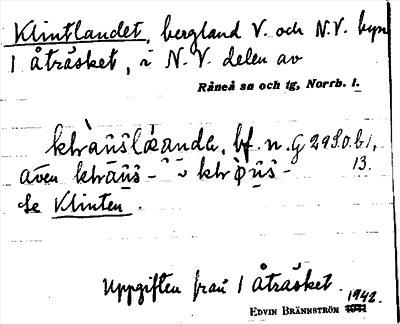 Klintlandet, bergland V. och N.V. byn
1 Åträsket, i N.V. delen av
Råneå sn och tg, Norrb. l.
bf. n. G 29S.O.b1,
även 13.
Se Klinten.
Uppgiften från 1 Åträsket.
1942.
EDVIN BRÄNNSTRÖM 1941